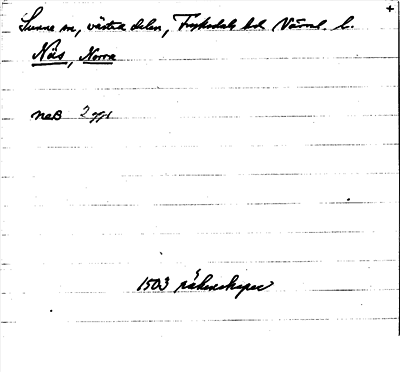 Sunne sn, västra delen, Fryksdals hd Värml. l.
Näs, Norra
næs 2 ggr
1503 räkenskaper